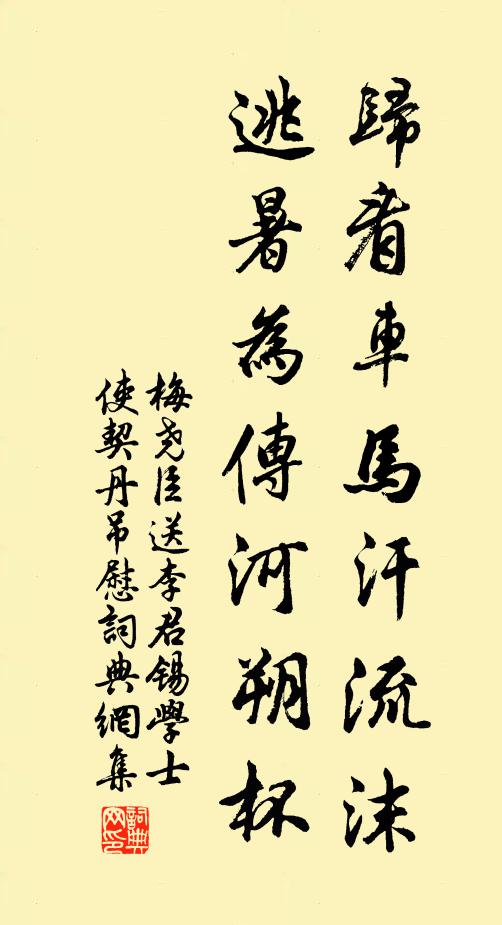 歸看車馬汗流沫
逃暑為傳河朔杯
梅堯臣送李君錫學士
使契丹吊慰詞典網集
詞典
网印